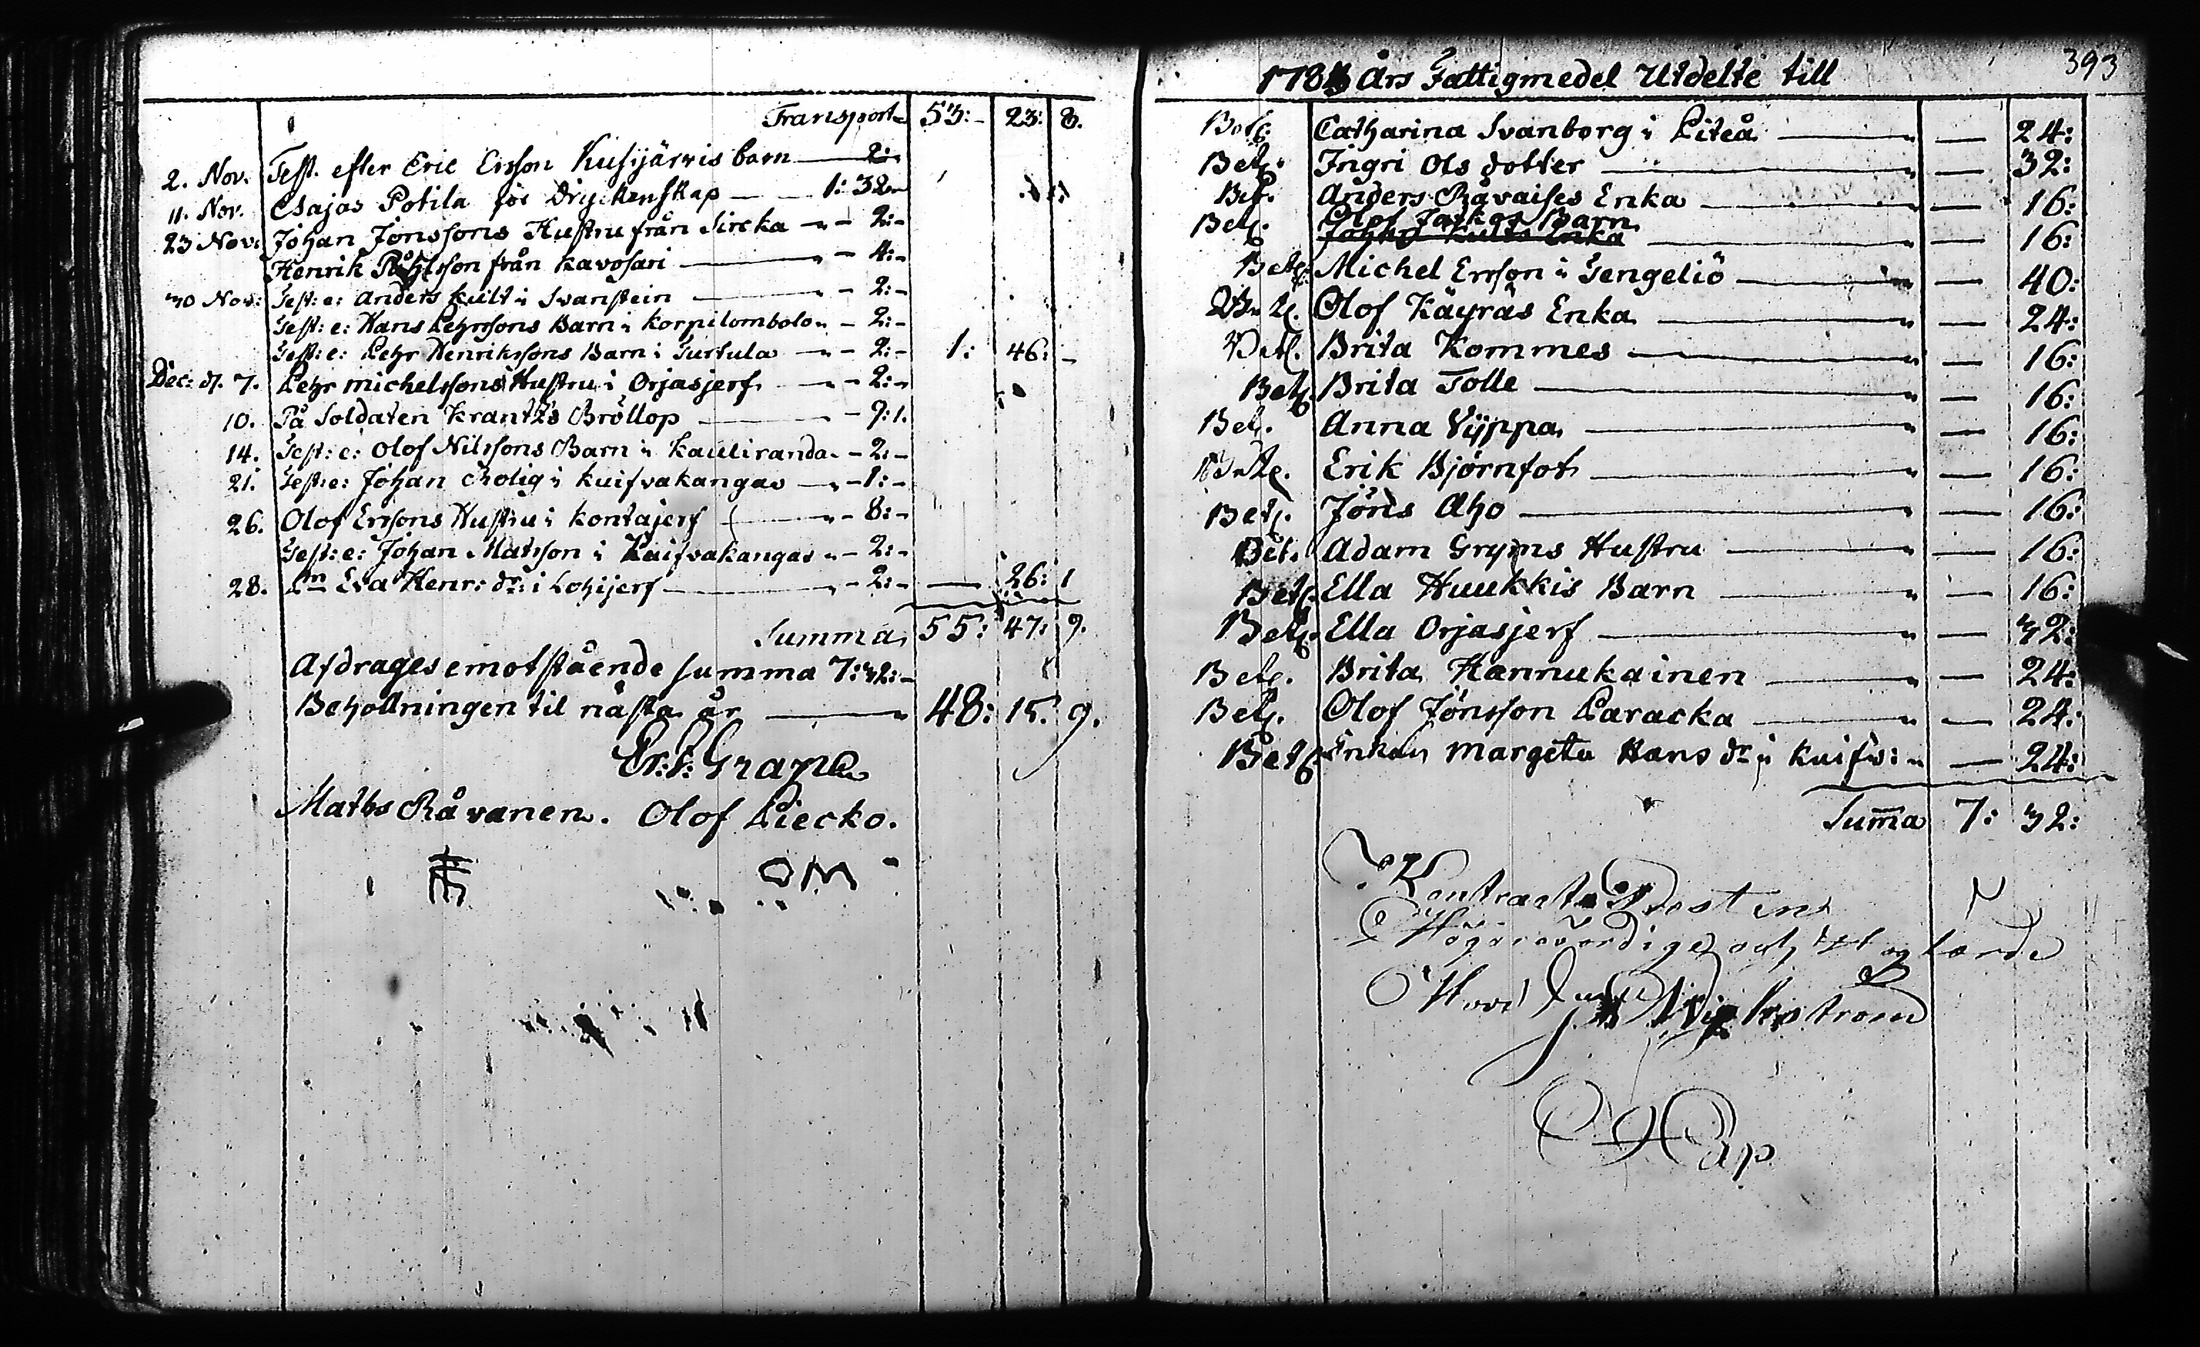 Transport 53:- 23: 8.
2. Nov. Test. efter Eric Ersson Kusijärvis barn 2:-
11. Nov. Esajas Potila för Dryckenskap 1: 32
23 Nov: Johan Jönssons Hustru från Sircka 2:-
Henrik från kavosari 4:-
30 Nov: Test: e: Anders kult i Svanstein 2:-
Test: e: Hans Pehrssons Barn i korpilombolo 2:-
Test: e: Pehr Henrikssons Barn i Turtula 2:- 1: 46:-
Dec: d. 7. Pehr michelssons Hustru i Orjasjerf 2:-
10. På Soldaten Krantz's Bröllop 9: 1.
14. Test: e: Olof Nilssons Barn i Kauliranda 2:-
21. Test: e: Johan Rolig i kuifvakangas 1:-
26. Olof Erssons Hustru i kontajerf 8:-
Test: e: Johan Matsson i Kuifvakangas 2:-
28. Eva Henr: dr: i Lohijerf 2:- — 26: 1
Summa 55: 47: 9.
Afdrages emotstående summa 7: 32:-
Behollningen til nästa år 48: 15. 9.
Er: P: Grape
Matts Råvanen. Olof Piecko.
OM
393
178 Års Fattigmedel Utdelte till
Bet. Catharina Svanborg i Piteå — 24:
Bet. Ingri Ols dotter — 32:
Bet. Anders Råvaises Enka — 16:
Olof Barn
Bet. Enka — 16:
Bet. Michel Ersson i Gengeliö — 40:
Bet. Olof Käyräs Enka — 24:
Bet. Brita Kommes — 16:
Bet. Brita Tolle — 16:
Bet. Anna Vyppa — 16:
Bet. Erik Björnfot — 16:
Bet. Jöns Aho — 16:
Bet. Adam Gryms Hustru — 16:
Bet. Ella Huukkis Barn — 16:
Bet. Ella Orjasjerf — 32:
Bet. Brita Hannukainen — 24:
Bet. Olof Jönsson Laracka — 24:
Bet. Enkan Margeta Hans dr i kuifv: — 24:
Summa 7: 32:
Kontracts Prosten
Högärevördige och Höglärde